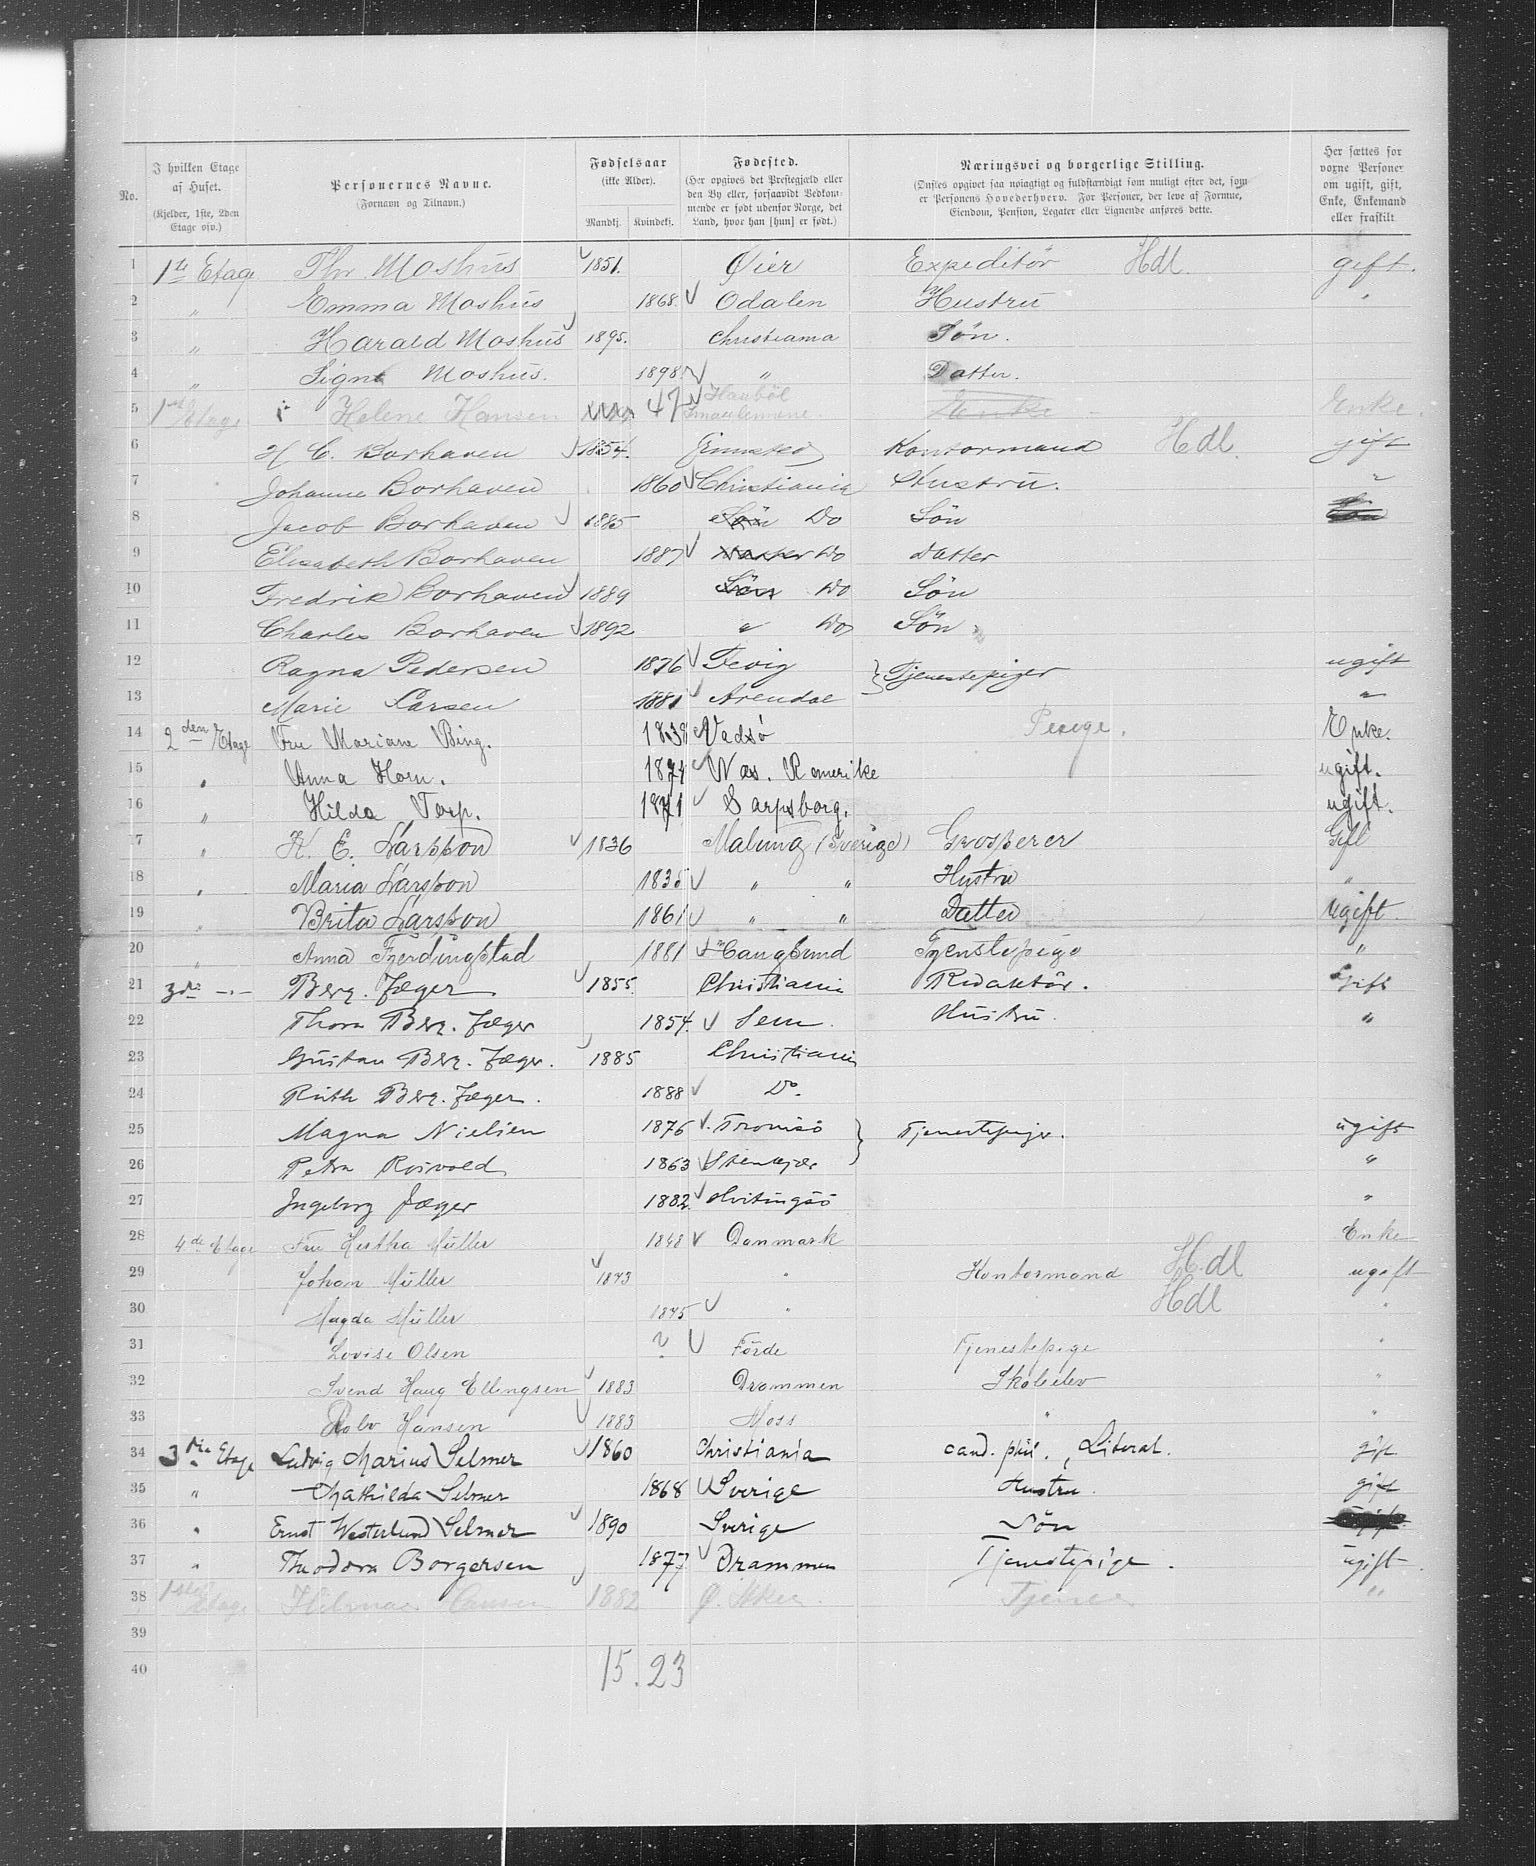 No.
I hvilken Etage af Huset. (Kjelder, 1ste, 2den Etage osv.)
Personernes Navne. (Fornavn og Tilnavn.)
Fødselsaar (ikke Alder). Mandkj. Kvindekj.
Fødested. (Her opgives det Prestegjæld eller den By eller, forsaavidt Vedkommende er født udenfor Norge, det Land, hvor han [hun] er født.)
Næringsvei og borgerlige Stilling. (Ønskes opgivet saa nøiagtigt og fuldstændigt som muligt efter det, som er Personens Hovederhverv. For Personer, der leve af Formue, Eiendom, Pension, Legater eller Lignende anføres dette.
Her sættes for voxne Personer om ugift, gift, Enke, Enkemand eller fraskilt
1 1ste Etage Thv Moshus 1851. Øier Expeditör Hdl. gift.
2 " Emma Moshus 1868. Odalen Hustru "
3 " Harald Moshus 1895. Christiania Sön.
4 " Signe Moshus. 1898 " Datter.
5 1ste Etage Helene Hansen 47 Enke Enke.
6 H C. Borhaven 1854. Grimstad Kontormand Hdl. gift
7 Johanne Borhaven 1860 Christiania Hustru. "
8 Jacob Borhaven 1885 Sön Do Sön
9 Elisabeth Borhaven 1887 Datter Do Datter
10 Fredrik Borhaven 1889 Sön Do Sön
11 Charles Borhaven 1892 " Do Sön
12 Ragna Pedersen 1876 Fevig Tjenestepiger ugift
13 Marie Larsen 1881 Arendal "
14 2den Etage Fru Mariane Bing. 1838 Vadsö Enke.
15 " Anna Horn. 1874 Næs. Romerike ugift.
16 " Hilda Torp. 1871 Sarpsborg. ugift.
17 " K. E. Larsson 1836 Malung (Sverige) Grosserer Gift
18 " Maria Larsson 1835 " " Hustru "
19 " Brita Larsson 1861 " " Datter Ugift
20 " Anna Fjerdingstad 1881 Haugsund Tjenestepige "
21 3die -"- Berg. Jæger 1855. Christiania Redaktör. Gift
22 Thora Berg. Jæger 1854. Sem. Hustru. "
23 Gustav Berg. Jæger. 1885 Christiania
24 Ruth Berg. Jæger. 1888 Do.
25 Magna Nielsen 1876 Tromsö Tjenestepiger. ugift
26 Petra Roisvold 1863 Stenkjær "
27 Ingeborg Jæger 1882. Hvitingsö "
28 4de Etage Fru Hertha Müller 1848 Danmark Enke
29 Johan Müller 1873 " Kontormand Hdl ugift
30 Magda Müller 1875 " Hdl "
31 Lovise Olsen ? Förde Tjenestepige "
32 Svend Haug Ellingsen 1883 Drammen Skoleelev "
33 Rolv Hansen 1883 Moss " "
34 3die Etage Ludvig Marius Selmer 1860 Christiania cand. phil., Literat. gift
35 " Mathilda Selmer 1868 Sverige Hustru. gift
36 " Ernst Westerlund Selmer 1890 Sverige Sön
37 " Theodora Borgersen 1877 Drammen Tjenestepige. ugift
38 1ste Etage 1882 Tjener "
39
40 15. 23